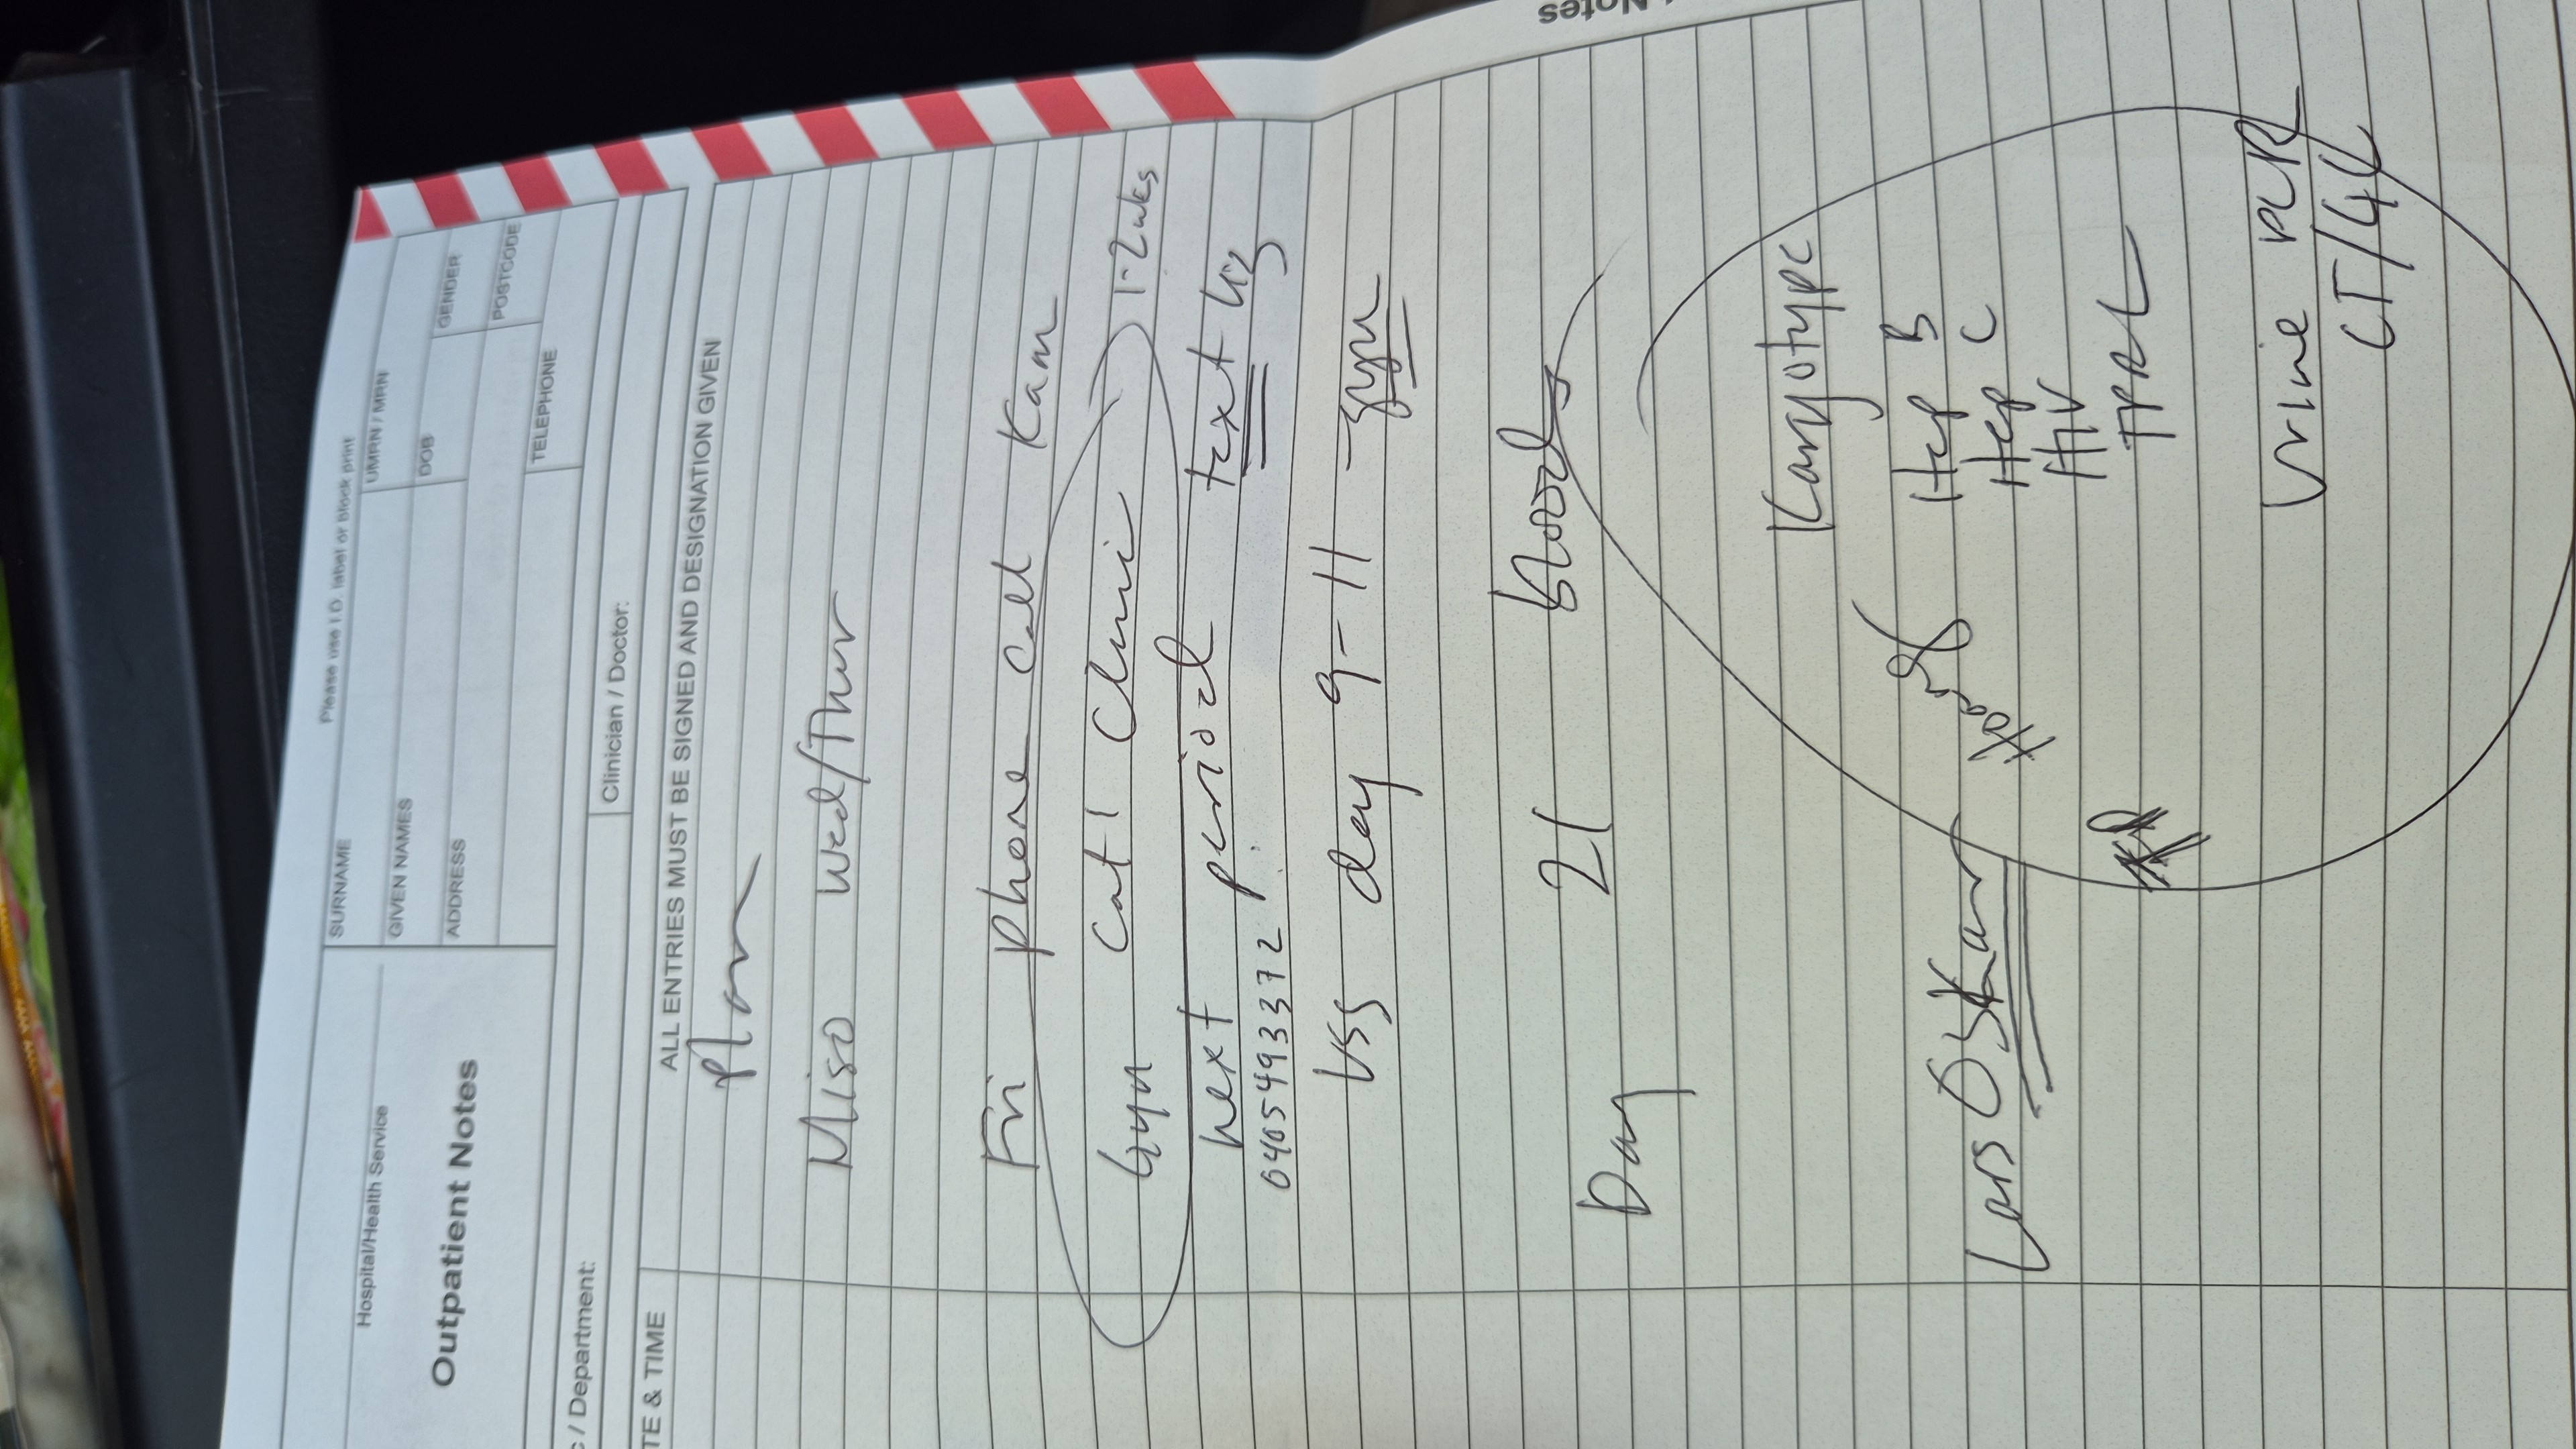 Notes
Please use I.D. label or block print
Hospital/Health Service
Outpatient Notes
SURNAME
UMRN / MRN
GIVEN NAMES
DOB
GENDER
ADDRESS
POSTCODE
TELEPHONE
/ Department:
Clinician / Doctor:
TE & TIME
ALL ENTRIES MUST BE SIGNED AND DESIGNATION GIVEN
Plan
Miso Wed/Thur
Fri phone call Kam
Gyn Cat 1 Clinic 1-2wks
next period text Liz
0405493372
USS day 9-11 - gyn
Day 21 bloods
Karyotype
Hep B
Lars Oskar Hep C
HIV
TPAL
Urine PCR
CT/GC